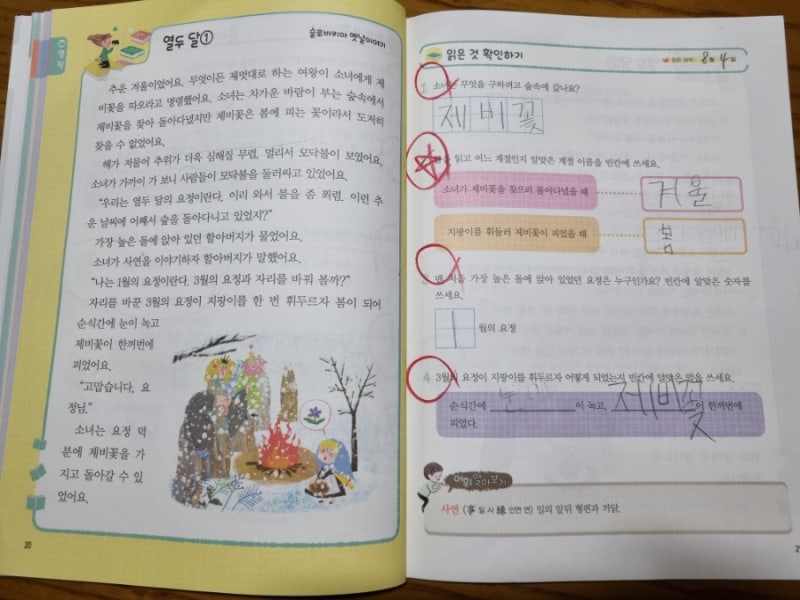 열두 달①
슬로바키아 옛날이야기
추운 겨울이었어요. 무엇이든 제멋대로 하는 여왕이 소녀에게 제
비꽃을 따오라고 명령했어요. 소녀는 차가운 바람이 부는 숲속에서
제비꽃을 찾아 돌아다녔지만 제비꽃은 봄에 피는 꽃이라서 도저히
찾을 수 없었어요.
해가 저물어 추위가 더욱 심해질 무렵, 멀리서 모닥불이 보였어요.
소녀가 가까이 가 보니 사람들이 모닥불을 둘러싸고 있었어요.
“우리는 열두 달의 요정이란다. 이리 와서 불을 좀 쬐렴. 이런 추
운 날씨에 어째서 숲을 돌아다니고 있었지?”
가장 높은 돌에 앉아 있던 할아버지가 물었어요.
소녀가 사연을 이야기하자 할아버지가 말했어요.
“나는 1월의 요정이란다. 3월의 요정과 자리를 바꿔 볼까?”
자리를 바꾼 3월의 요정이 지팡이를 한 번 휘두르자 봄이 되어
순식간에 눈이 녹고
제비꽃이 한꺼번에
피었어요.
“고맙습니다, 요
정님.”
소녀는 요정 덕
분에 제비꽃을 가
지고 돌아갈 수 있
었어요.
20
읽은 것 확인하기
읽은 날짜 : 8월 4일
1 소녀는 무엇을 구하려고 숲속에 갔나요?
제비꽃
읽고 어느 계절인지 알맞은 계절 이름을 빈칸에 쓰세요.
소녀가 제비꽃을 찾으러 돌아다녔을 때 겨울
지팡이를 휘둘러 제비꽃이 피었을 때 봄
맨 처음 가장 높은 돌에 앉아 있었던 요정은 누구인가요? 빈칸에 알맞은 숫자를
쓰세요.
1 월의 요정
4 3월의 요정이 지팡이를 휘두르자 어떻게 되었는지 빈칸에 알맞은 말을 쓰세요.
순식간에 눈이 녹고, 제비꽃이 한꺼번에
피었다.
어휘 알아보기
사연 (事 일 사 緣 인연 연) 일의 앞뒤 형편과 까닭.